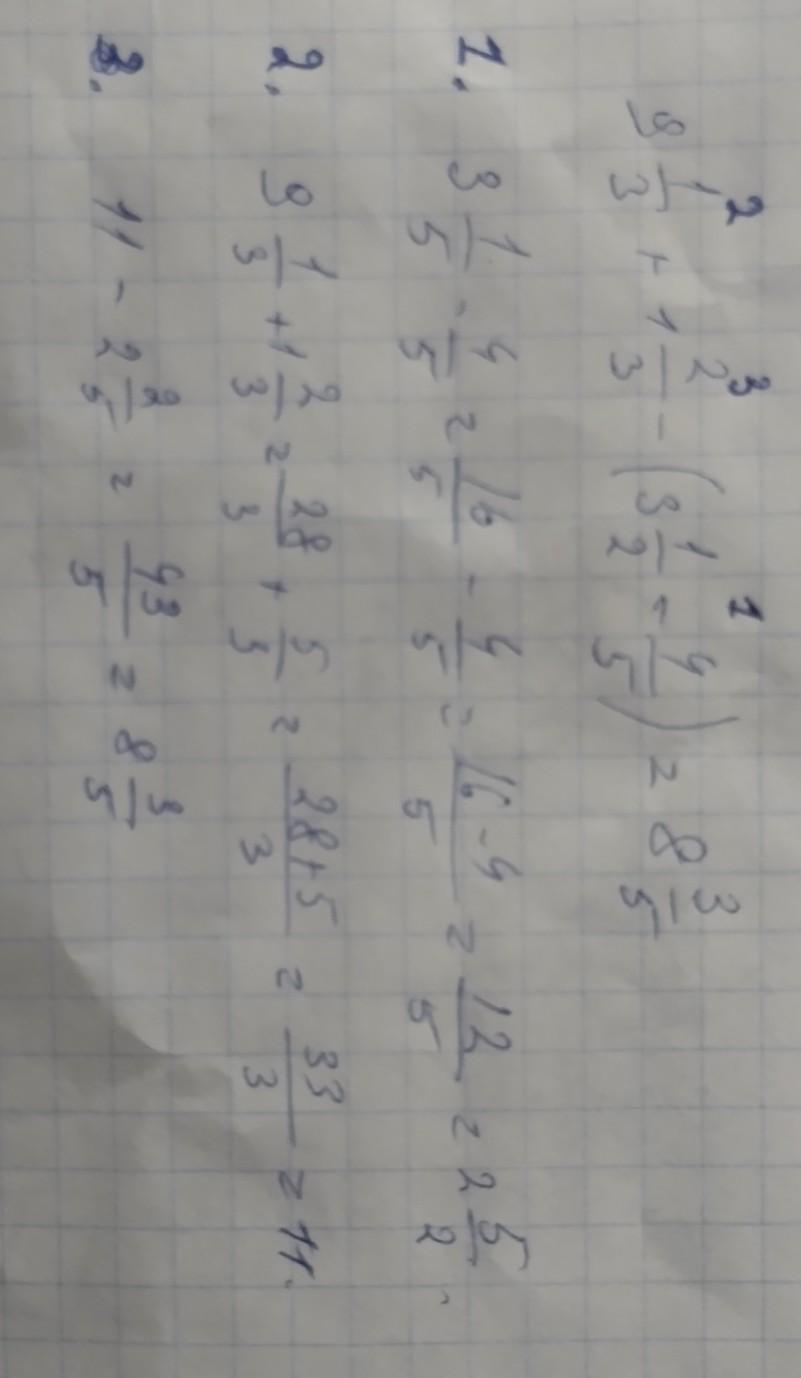 9 1/3 + 1 2/3 - (3 1/2 - 4/5) = 8 3/5
1. 3 1/5 - 4/5 = 16/5 - 4/5 = 16-4/5 = 12/5 = 2 5/2
2. 9 1/3 + 1 2/3 = 28/3 + 5/3 = 28+5/3 = 33/3 = 11.
3. 11 - 2 2/5 = 43/5 = 8 3/5